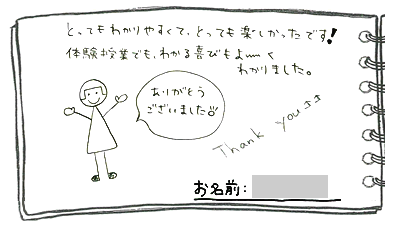 とってもわかりやすくて、とっても楽しかったです!
体験授業でも、わかる喜びもよーく
わかりました。
ありがとう
ございました
Thank you♪♪
お名前: